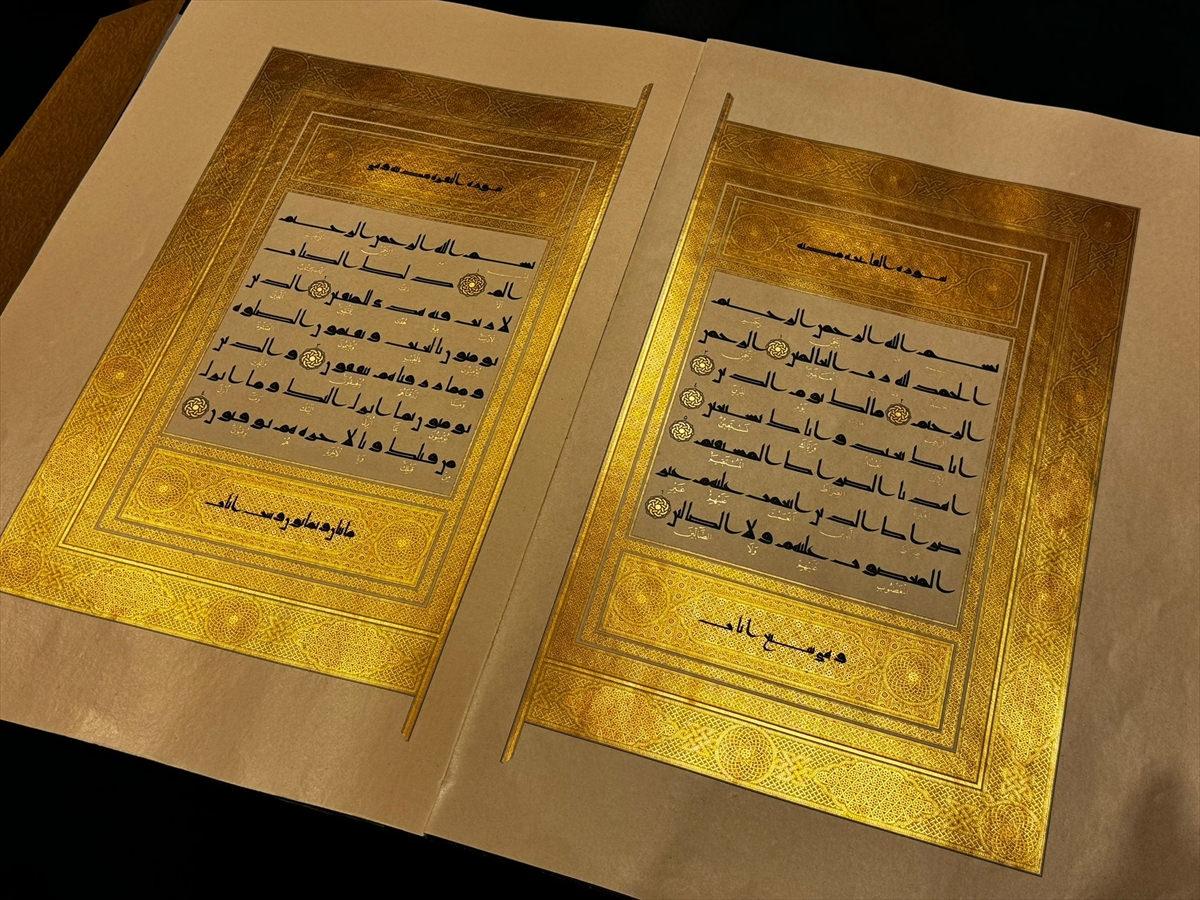 سورة الفاتحة مكية
بسم الله الرحمن الرحيم
الحمد لله رب العالمين الرحمن
الرحيم مالك يوم الدين
اياك نعبد و اياك نستعين
اهدنا الصراط المستقيم
صراط الذين انعمت عليهم غير
المغضوب عليهم ولا الضالين
وهي سبع ايات
سورة البقرة مدنية وهي
بسم الله الرحمن الرحيم
الم ذلك الكتاب
لا ريب فيه هدى للمتقين الذين
يومنون بالغيب ويقيمون الصلوة
ومما رزقناهم ينفقون والذين
يومنون بما انزل اليك وما انزل
من قبلك وبالاخرة هم يوقنون
مايتان وثمانون وست ايات